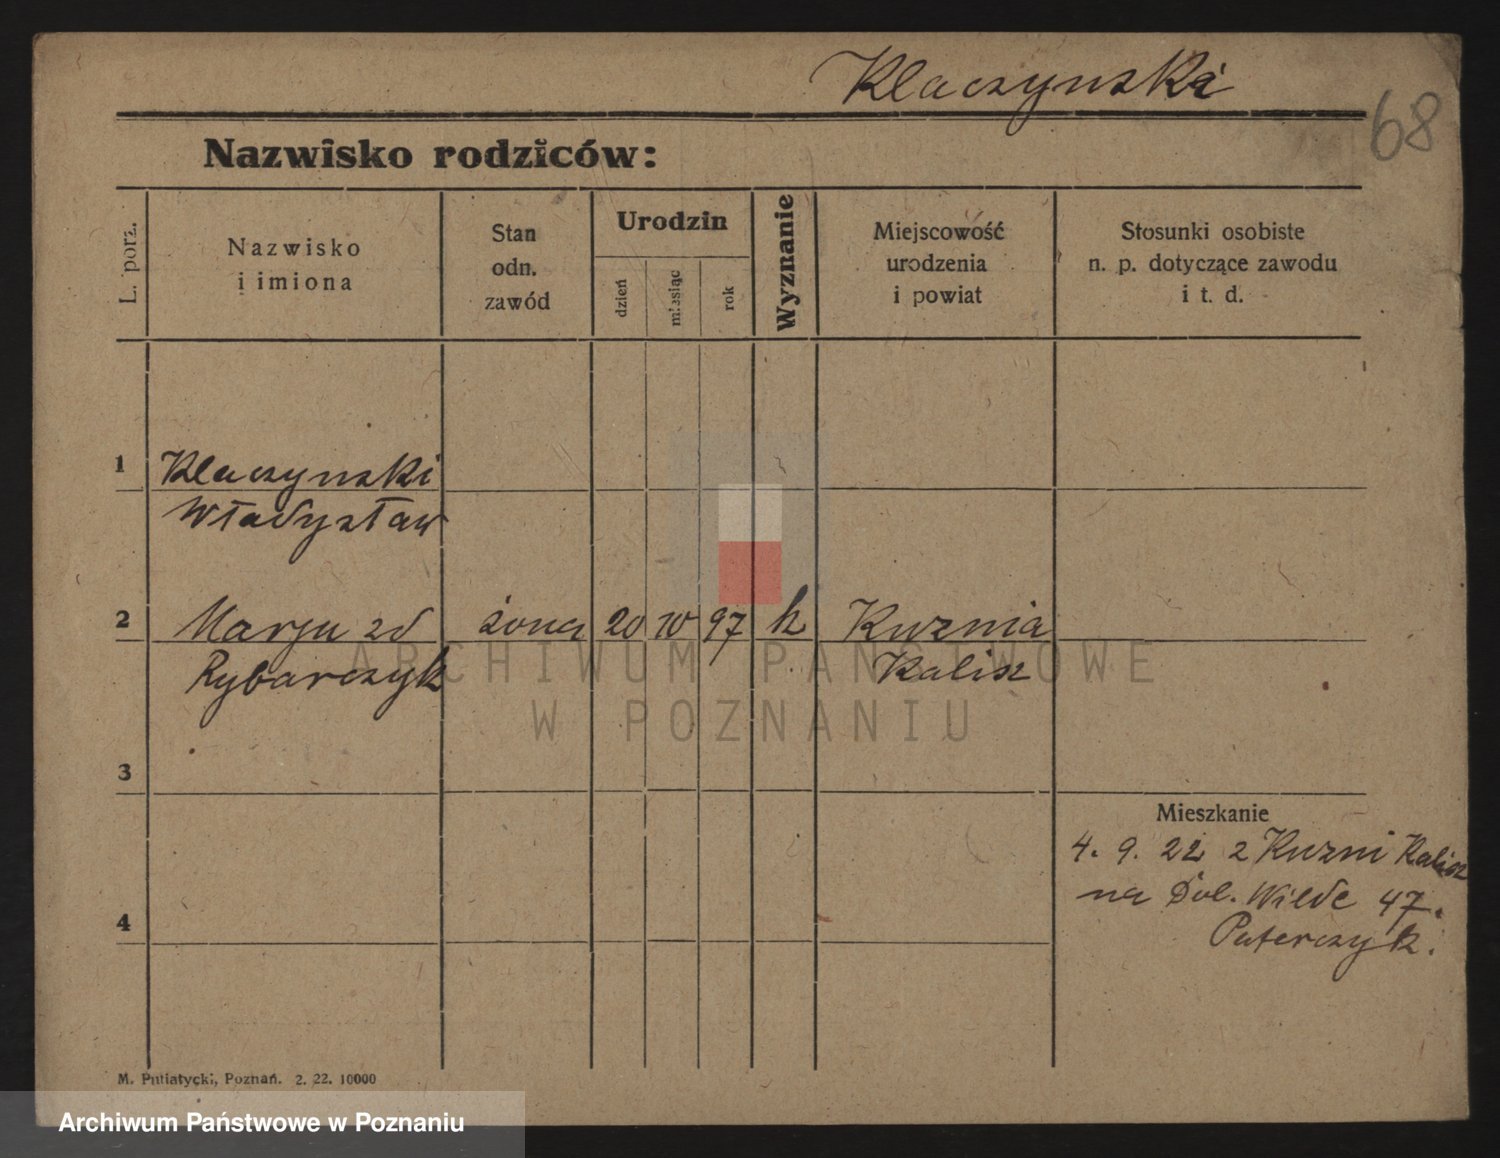 Klaczynski
68
Nazwisko rodziców:
L. porz.
Nazwisko
i imiona
Stan
odn.
zawód
Urodzin
dzień
miesiąc
rok
Wyznanie
Miejscowość
urodzenia
i powiat
Stosunki osobiste
n. p. dotyczące zawodu
i t. d.
1
Klaczynski
Władysław
2
Marja zd
żona
20
10
97
k
Kuznia
Rybarczyk
Kalisz
ARCHIWUM PAŃSTWOWE
W POZNANIU
3
Mieszkanie
4. 9. 22 z Kuzni Kalisz
na Dol. Wilde 47.
4
Paterczyk.
M. Putiatycki, Poznań. 2. 22. 10000
Archiwum Państwowe w Poznaniu